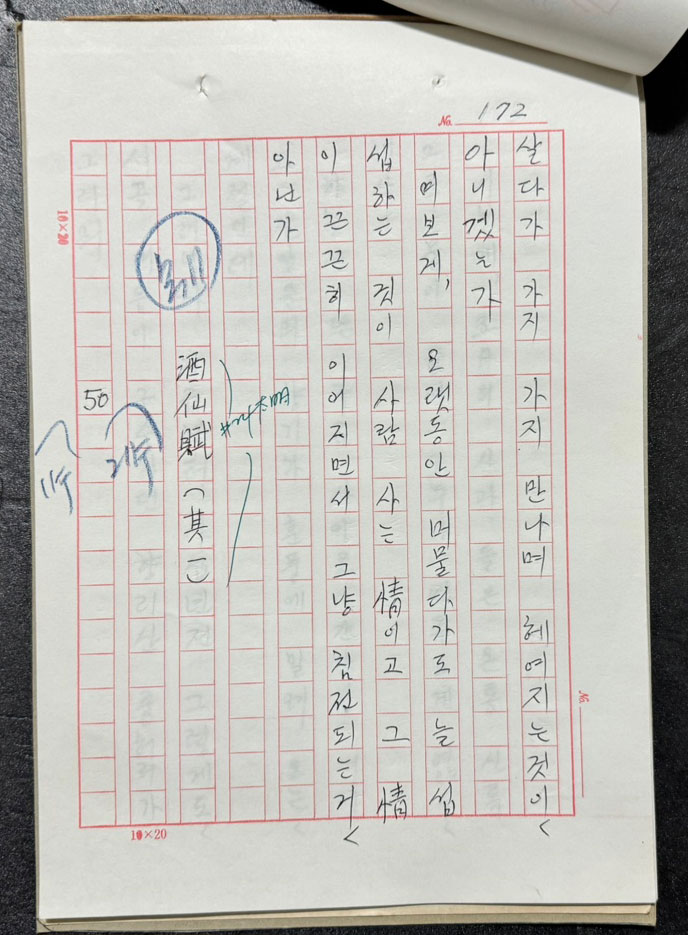 No. 172
살다가 가지 가지 만나며 헤여지는것이
아니겠는가
여보게, 오랫동안 머물다가도 늘 섭
섭하는 것이 사람 사는 情이고 그 情
이 끈끈히 이어지면서 그냥 침전되는거
아닌가
酒仙賦 (其一)
50
10×20
10×20
No.